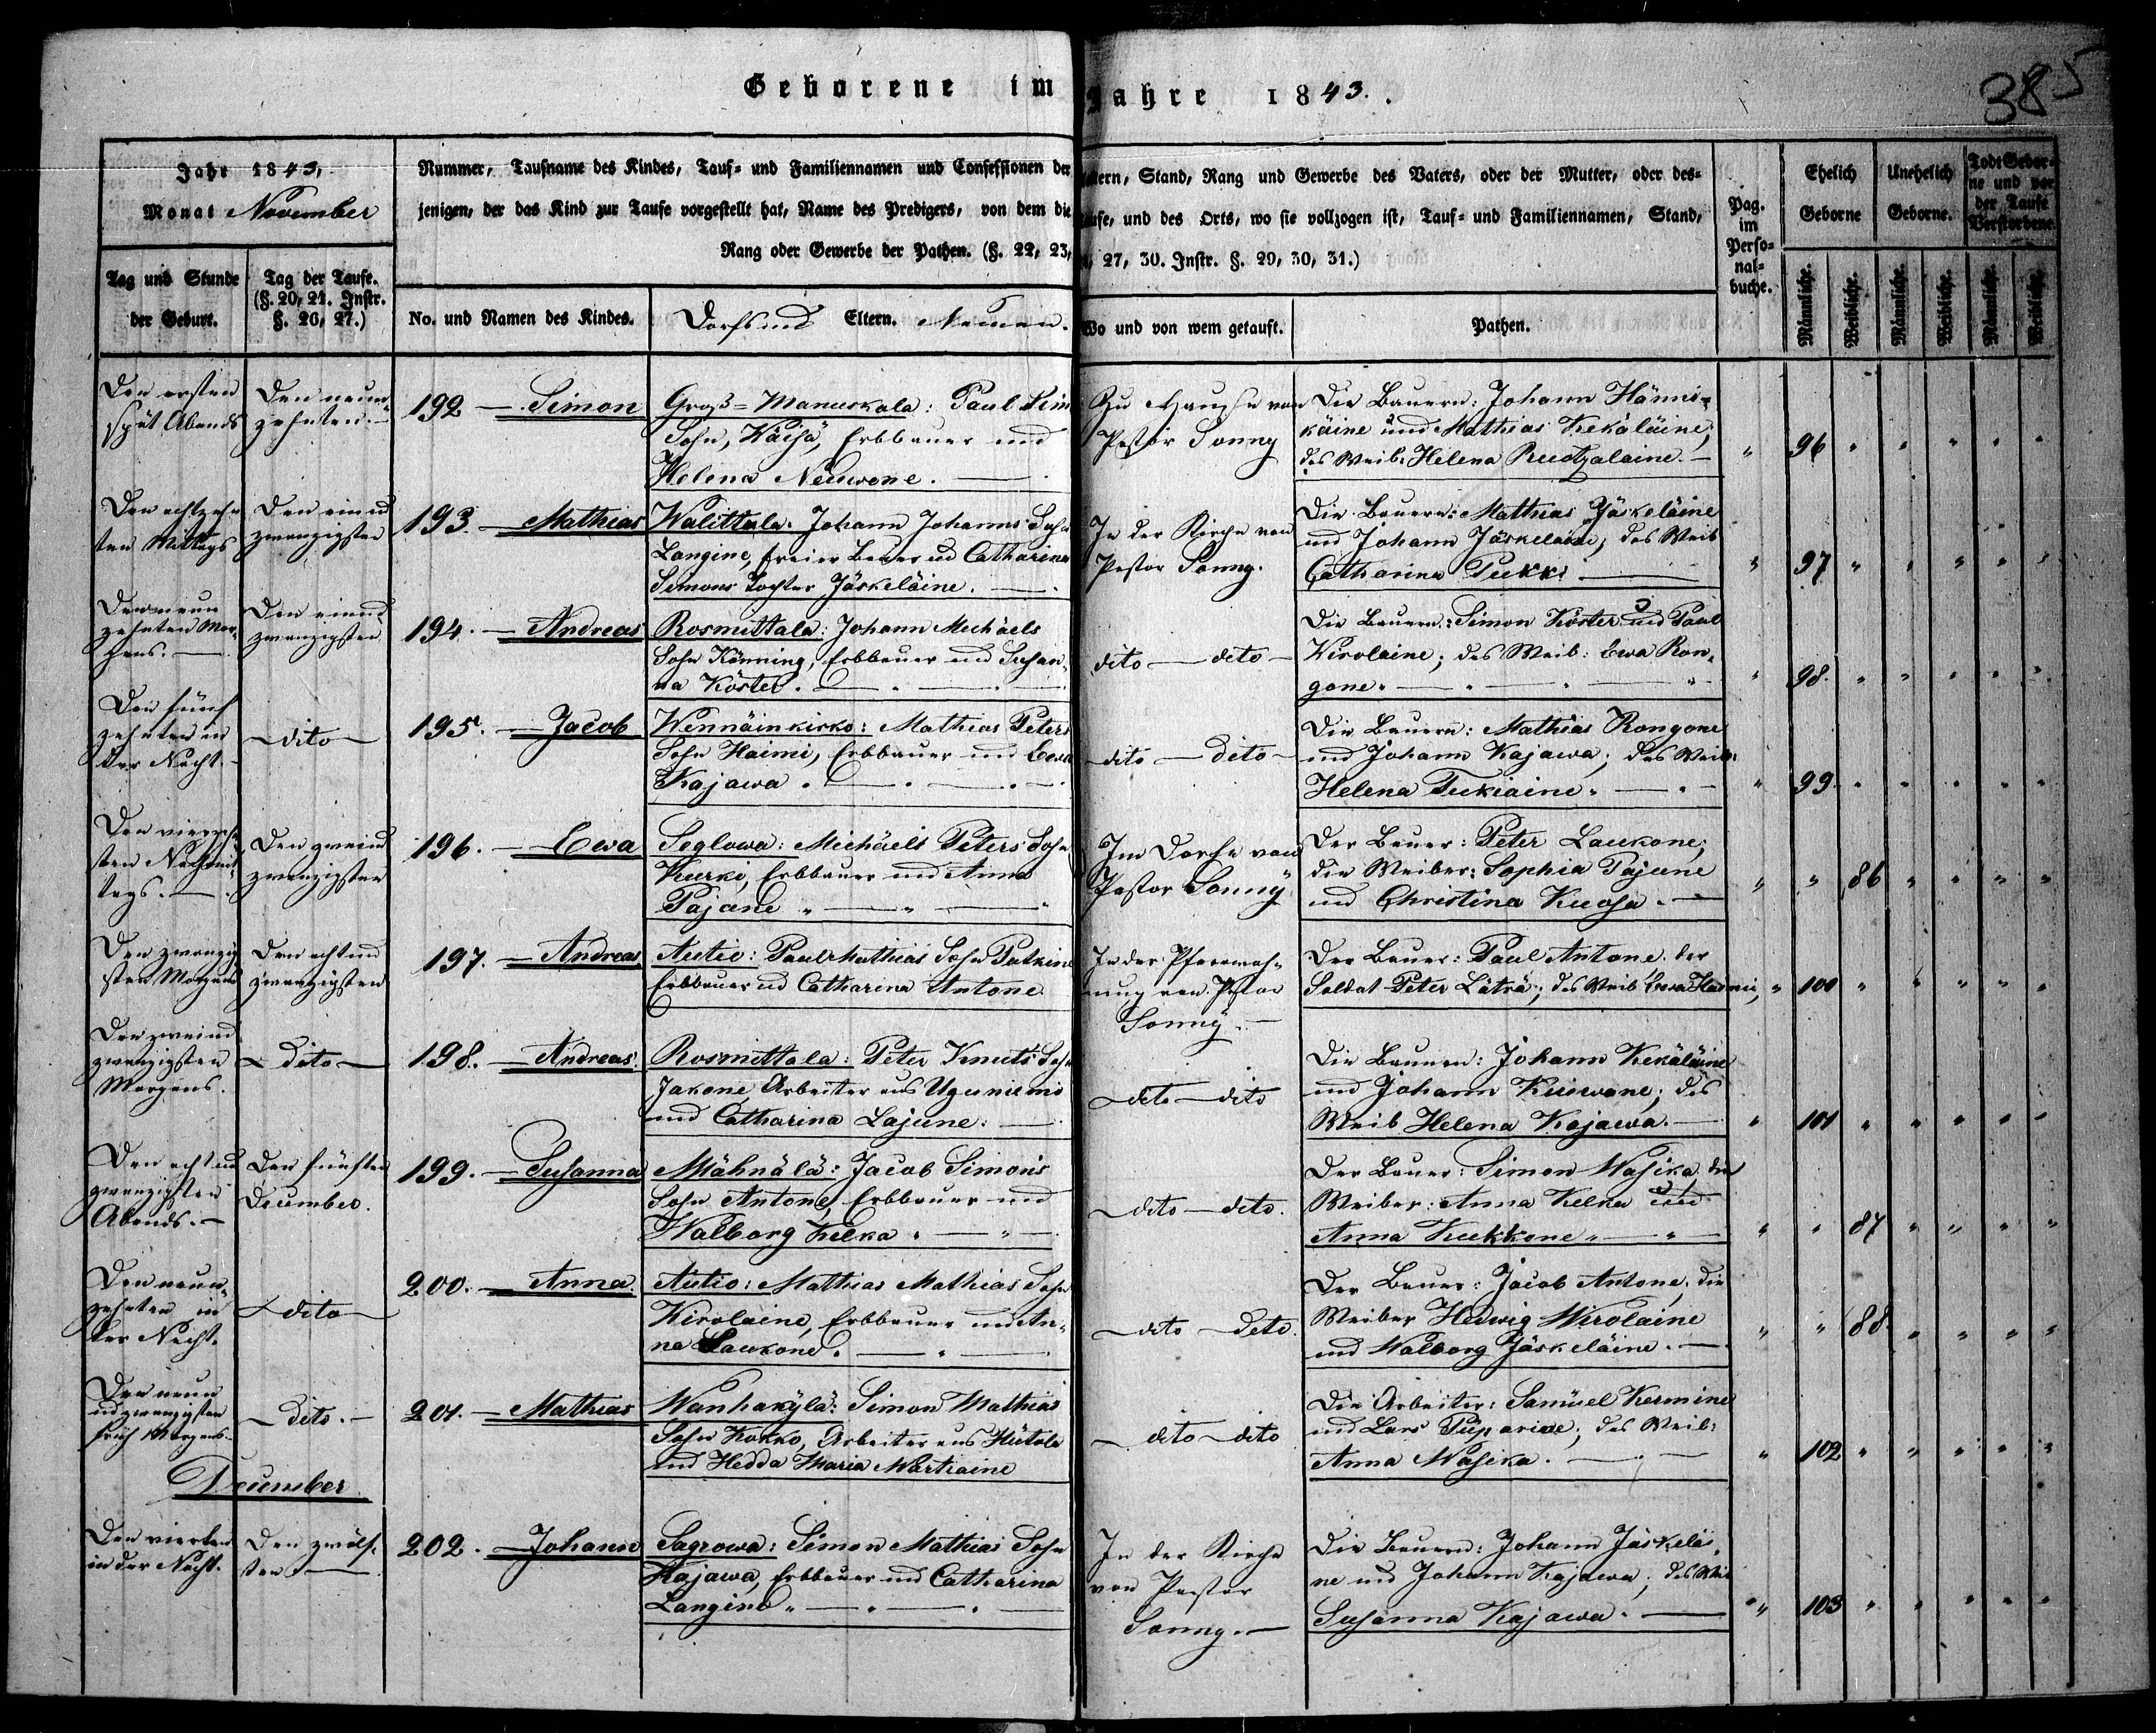 Geborene im Jahre 1843.
385
Jahr 1843,
Monat November
Nummer, Taufname des Kindes, Tauf- und Familiennamen und Confessionen der Eltern, Stand, Rang und Gewerbe des Vaters, oder der Mutter, oder des-
jenigen, der das Kind zur Taufe vorgestellt hat, Name des Predigers, von dem die Taufe, und des Orts, wo sie vollzogen ist, Tauf- und Familiennamen, Stand,
Rang oder Gewerbe der Pathen. (§. 22, 23, 27, 30. Instr. §. 29, 30, 31.)
Pag. im Perso-nal-buche.
Ehelich Geborne
Unehelich Geborne.
Todt Gebor-ne und vor der Taufe Verstorbene
Tag und Stunde der Geburt.
Tag der Taufe. (§. 20, 21. Instr. §. 26, 27.)
No. und Namen des Kindes.
Dorf und Eltern. Namen.
Wo und von wem getauft.
Pathen.
Männliche. Weibliche. Männliche. Weibliche. Männliche. Weibliche.
Den ersten
spät Abends
Den neun-
zehnten.
192 — Simon
Groß-Manuskala: Paul Sim
Sohn, Käisä, Erbbauer und
Helena Neuwone.
Zu Hause von
Pastor Sonny
Die Bauern: Johann Hänni-
käine und Mathias Kekäläine,
das Weib: Helena Ruotzalaine.
96
Den achtzehn
ten Mittags
Den einud
zwanzigsten
193 — Mathias
Walittala: Johann Johanns Sohn
Langine, freier Bauer ud Catharina
Simons Tochter Jäskeläine.
In der Kirche von
Pastor Sonny.
Die Bauern: Mathias Jäskeläine
und Johann Jäskeläine, das Weib
Catharina Pukki
97
Den neun
zehnten Mor-
gens.
Den einud
zwanzigsten
194. — Andreas
Rosmittala: Johann Michaels
Sohn Könning, Erbbauer und Susan-
na Köster.
dito — dito
Die Bauern: Simon Köster und Paul
Kirolaine; das Weib: Ewa Ron-
gone.
98.
Den fünf
zehnten in
der Nacht.
dito
195. — Jacob
Wennäinkirko: Mathias Peters
Sohn Haimi, Erbbauer und Ewa
Kajawa.
dito — dito
Die Bauern: Mathias Rongone
und Johann Kajawa; das Weib:
Helena Tukiaine.
99.
Den vierzehn
ten Nachmit
tags.
Den zweiud
zwanzigsten
196. — Ewa
Soglowa: Michaels Peters Sohn
Kurki, Erbbauer und Anna
Pajane
Im Dorfe von
Pastor Sonny
Der Bauer: Peter Laukone;
die Weiber: Sophia Pajune
und Christina Kuosa.
86
Den zwanzig
sten Morgens
Den achtund
zwanzigsten
197. — Andreas
Autio: Paul Mathias Sohn Putkine
Erbbauer ud Catharina Antone
In der Pfarrwoh-
nung von Pastor
Sonny.
Der Bauer: Paul Antone, der
Soldat Peter Läträ; das Weib Ewa Haimi,
100
Den zweiud
zwanzigsten
Morgens.
dito
198. — Andreas.
Rosmittala: Peter Knuts Sohn
Jakone, Arbeiter aus Uguniemi
und Catharina Lajune.
dito — dito
Die Bauern: Johann Kekäläine
und Johann Kuiwane; das
Weib Helena Kajawa.
101
Den acht ud
zwanzigsten
Abends.
Den fünften
December.
199. — Susanna
Mähnälä: Jacob Simons
Sohn Antone, Erbbauer und
Walborg Kelka.
dito — dito.
Der Bauer: Simon Wasika die
Weiber: Anna Kelka und
Anna Kukkone
87
Den neun-
zehnten in
der Nacht.
dito
200. — Anna.
Autio: Mathias Mathias Sohn
Kirolaine, Erbbauer und An-
na Laukone.
dito — dito.
Der Bauer: Jacob Antone, die
Weiber Hedwig Kirolaine
und Walborg Jäskeläine.
88.
Den neun
udzwanzigsten
früh Morgens.
dito.
201. — Mathias
Wanhakylä: Simon Mathias
Sohn Kokko, Arbeiter aus Hiitola
und Hedda Maria Martiaine
dito — dito
Die Arbeiter: Samuel Kermine
und Lars; das Weib:
Anna Wasika.
102
December
Den vierten
in der Nacht.
Den zwölf-
ten
202. — Johann
Sagrowa: Simon Mathias Sohn
Kajawa, Erbbauer und Catharina
Langine
In der Kirche
von Pastor
Sonny.
Die Bauern: Johann Jäskeläi-
ne und Johann Kajawa; das Weib
Susanna Kajawa.
103